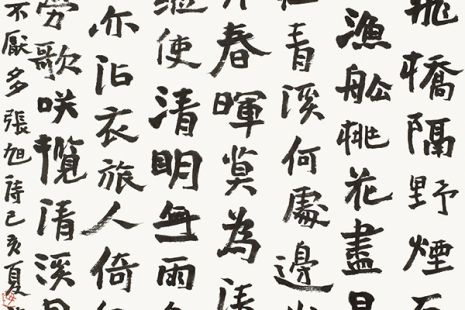 飛橋隔野煙石
漁船桃花盡日
在青溪何處邊山
弄春暉莫為
縱使清明無雨色
亦沾衣旅人倚
勞歌咲攬清溪
不厭多張旭詩己亥夏